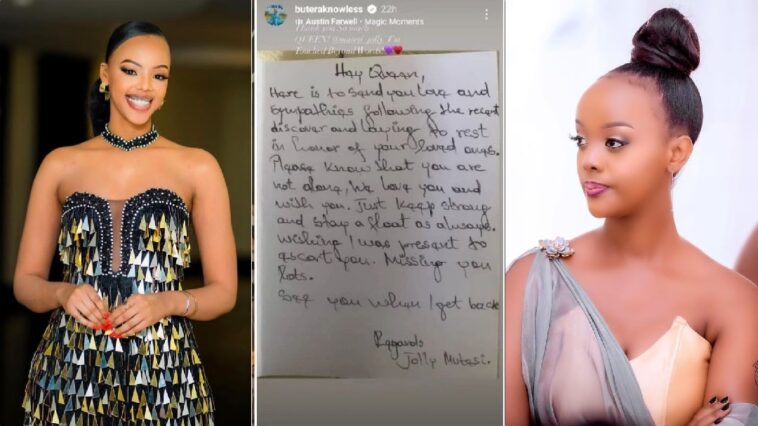 buteraknowless 22h
Austin Farwell • Magic Moments
Thank you so much
QUEEN!
Touched Beyond Words!
Hay Queen,
Here is to send you Love and
Sympathies following the recent
discover and Laying to rest
in honor of your Loved ones.
Please know that you are
not alone, We Love you and
with you. Just keep strong
and stay a float as always.
Wishing I was present to
escort you. Missing you
Lots.
See you when I get back
Regards
Jolly Mutesi.